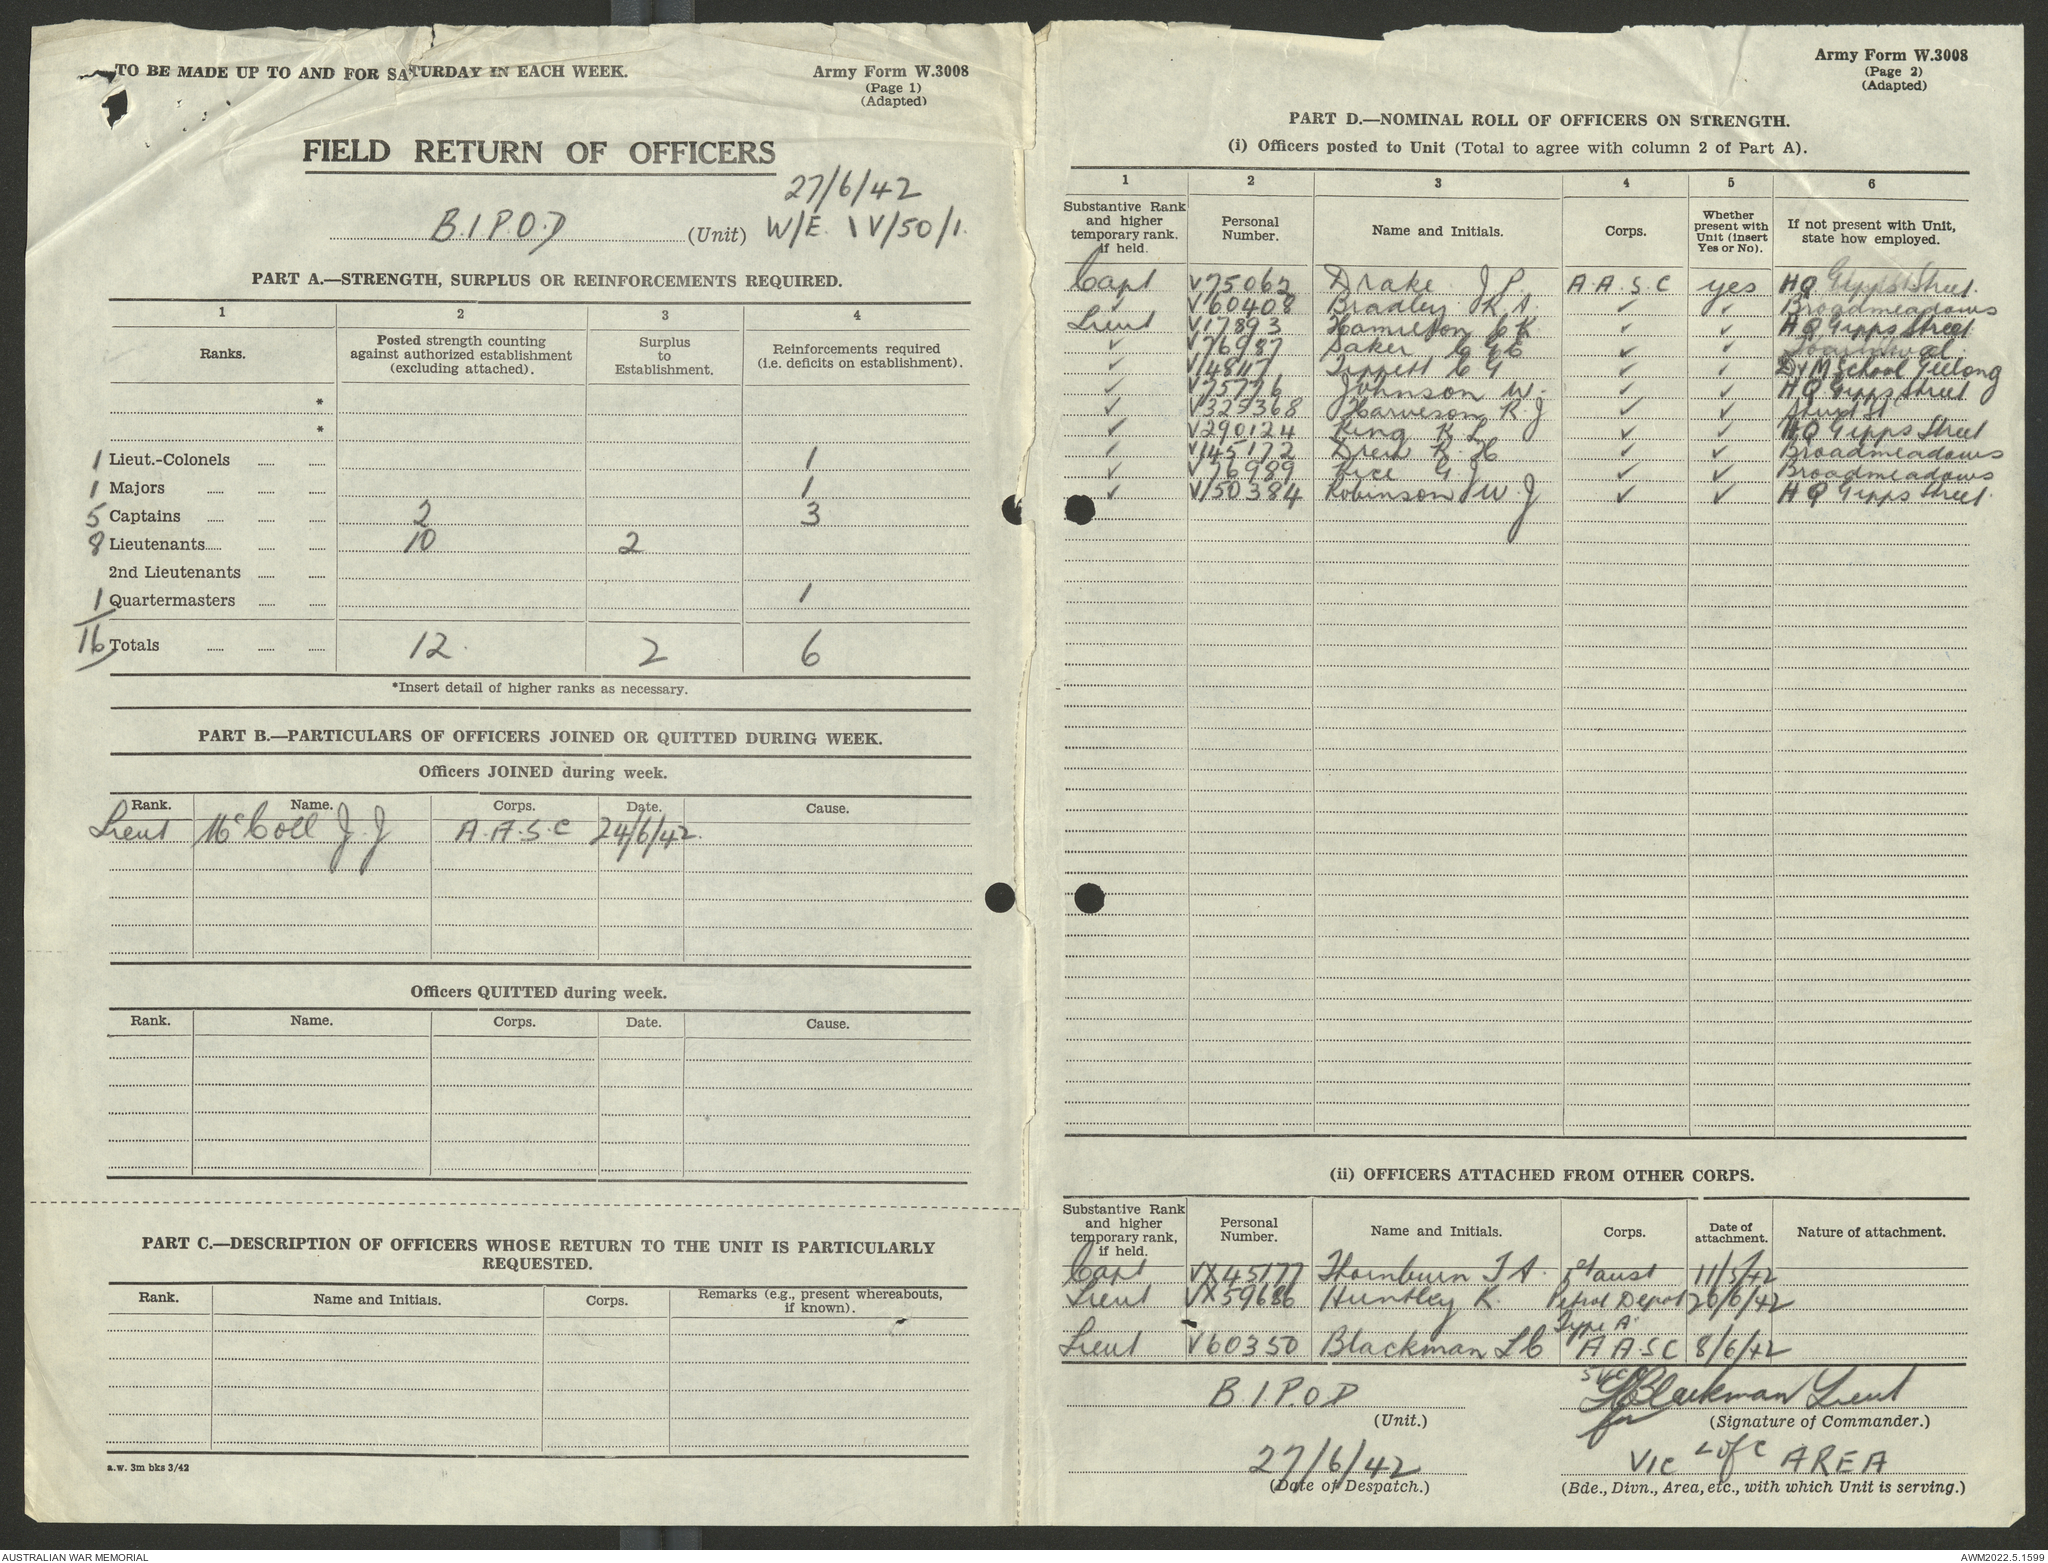 TO BE MADE UP TO AND FOR SATURDAY IN EACH WEEK.
Army Form W.3008
(Page 1)
(Adapted)
FIELD RETURN OF OFFICERS
27/6/42
B.I.P.O.D (Unit) W/E. IV/50/1.
PART A.—STRENGTH, SURPLUS OR REINFORCEMENTS REQUIRED.
1 2 3 4
Ranks. Posted strength counting against authorized establishment (excluding attached). Surplus to Establishment. Reinforcements required (i.e. deficits on establishment).
*
*
1 Lieut.-Colonels 1
1 Majors 1
5 Captains 2 3
8 Lieutenants 10 2
2nd Lieutenants
1 Quartermasters 1
16 Totals 12. 2 6
*Insert detail of higher ranks as necessary.
PART B.—PARTICULARS OF OFFICERS JOINED OR QUITTED DURING WEEK.
Officers JOINED during week.
Rank. Name. Corps. Date. Cause.
Lieut McColl J. J A.A.S.C 24/6/42.
Officers QUITTED during week.
Rank. Name. Corps. Date. Cause.
PART C.—DESCRIPTION OF OFFICERS WHOSE RETURN TO THE UNIT IS PARTICULARLY
REQUESTED.
Rank. Name and Initials. Corps. Remarks (e.g., present whereabouts, if known).
a.w. 3m bks 3/42
Army Form W.3008
(Page 2)
(Adapted)
PART D.—NOMINAL ROLL OF OFFICERS ON STRENGTH.
(i) Officers posted to Unit (Total to agree with column 2 of Part A).
1 2 3 4 5 6
Substantive Rank and higher temporary rank, if held. Personal Number. Name and Initials. Corps. Whether present with Unit (insert Yes or No). If not present with Unit, state how employed.
Capt V75062 Drake J P. A.A.S.C yes HQ Gipps Street.
✓ V60408 Bradley K A ✓ ✓ Broadmeadows
Lieut V17893 Hamilton C K ✓ ✓ HQ Gipps Street
✓ V76987 Saker C G E ✓ ✓
✓ V14847 Tippett C G ✓ ✓ D&M School Geelong
✓ V75776 Johnson W. ✓ ✓ HQ Gipps Street
✓ V325368 Harveson R. J ✓ ✓ Sturt St
✓ V290124 King K L ✓ ✓ HQ Gipps Street
✓ V145172 Drew R. H ✓ ✓ Broadmeadows
✓ V76989 Rice G J ✓ ✓ Broadmeadows
✓ V150384 Robinson W. J ✓ ✓ HQ Gipps Street.
(ii) OFFICERS ATTACHED FROM OTHER CORPS.
Substantive Rank and higher temporary rank, if held. Personal Number. Name and Initials. Corps. Date of attachment. Nature of attachment.
Capt VX45177 Thornburn T A. 1st Aust 11/5/42
Lieut VX59686 Huntley K. Petrol Depot 20/6/42
Type A.
Lieut V60350 Blackman L C A A.S.C 8/6/42
B.I.P.O.D
(Unit.)
L C Blackman Lieut
for
(Signature of Commander.)
27/6/42
(Date of Despatch.)
Vic L of C AREA
(Bde., Divn., Area, etc., with which Unit is serving.)
AUSTRALIAN WAR MEMORIAL
AWM2022.5.1599